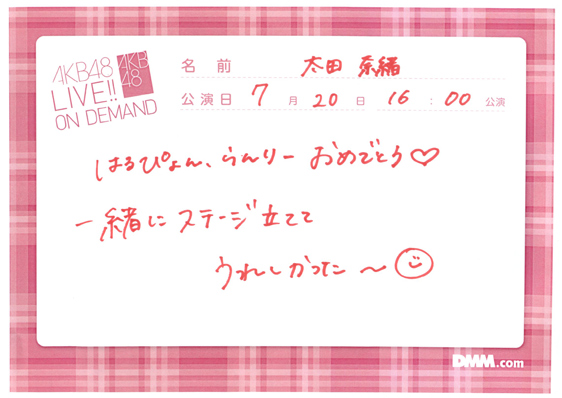 AKB48
LIVE!!
ON DEMAND
AKB
48
名前 太田 奈緒
公演日 7月20日 16:00公演
はるぴょん、らんりー おめでとう♡
一緒にステージ立てて
うれしかった〜
DMM.com